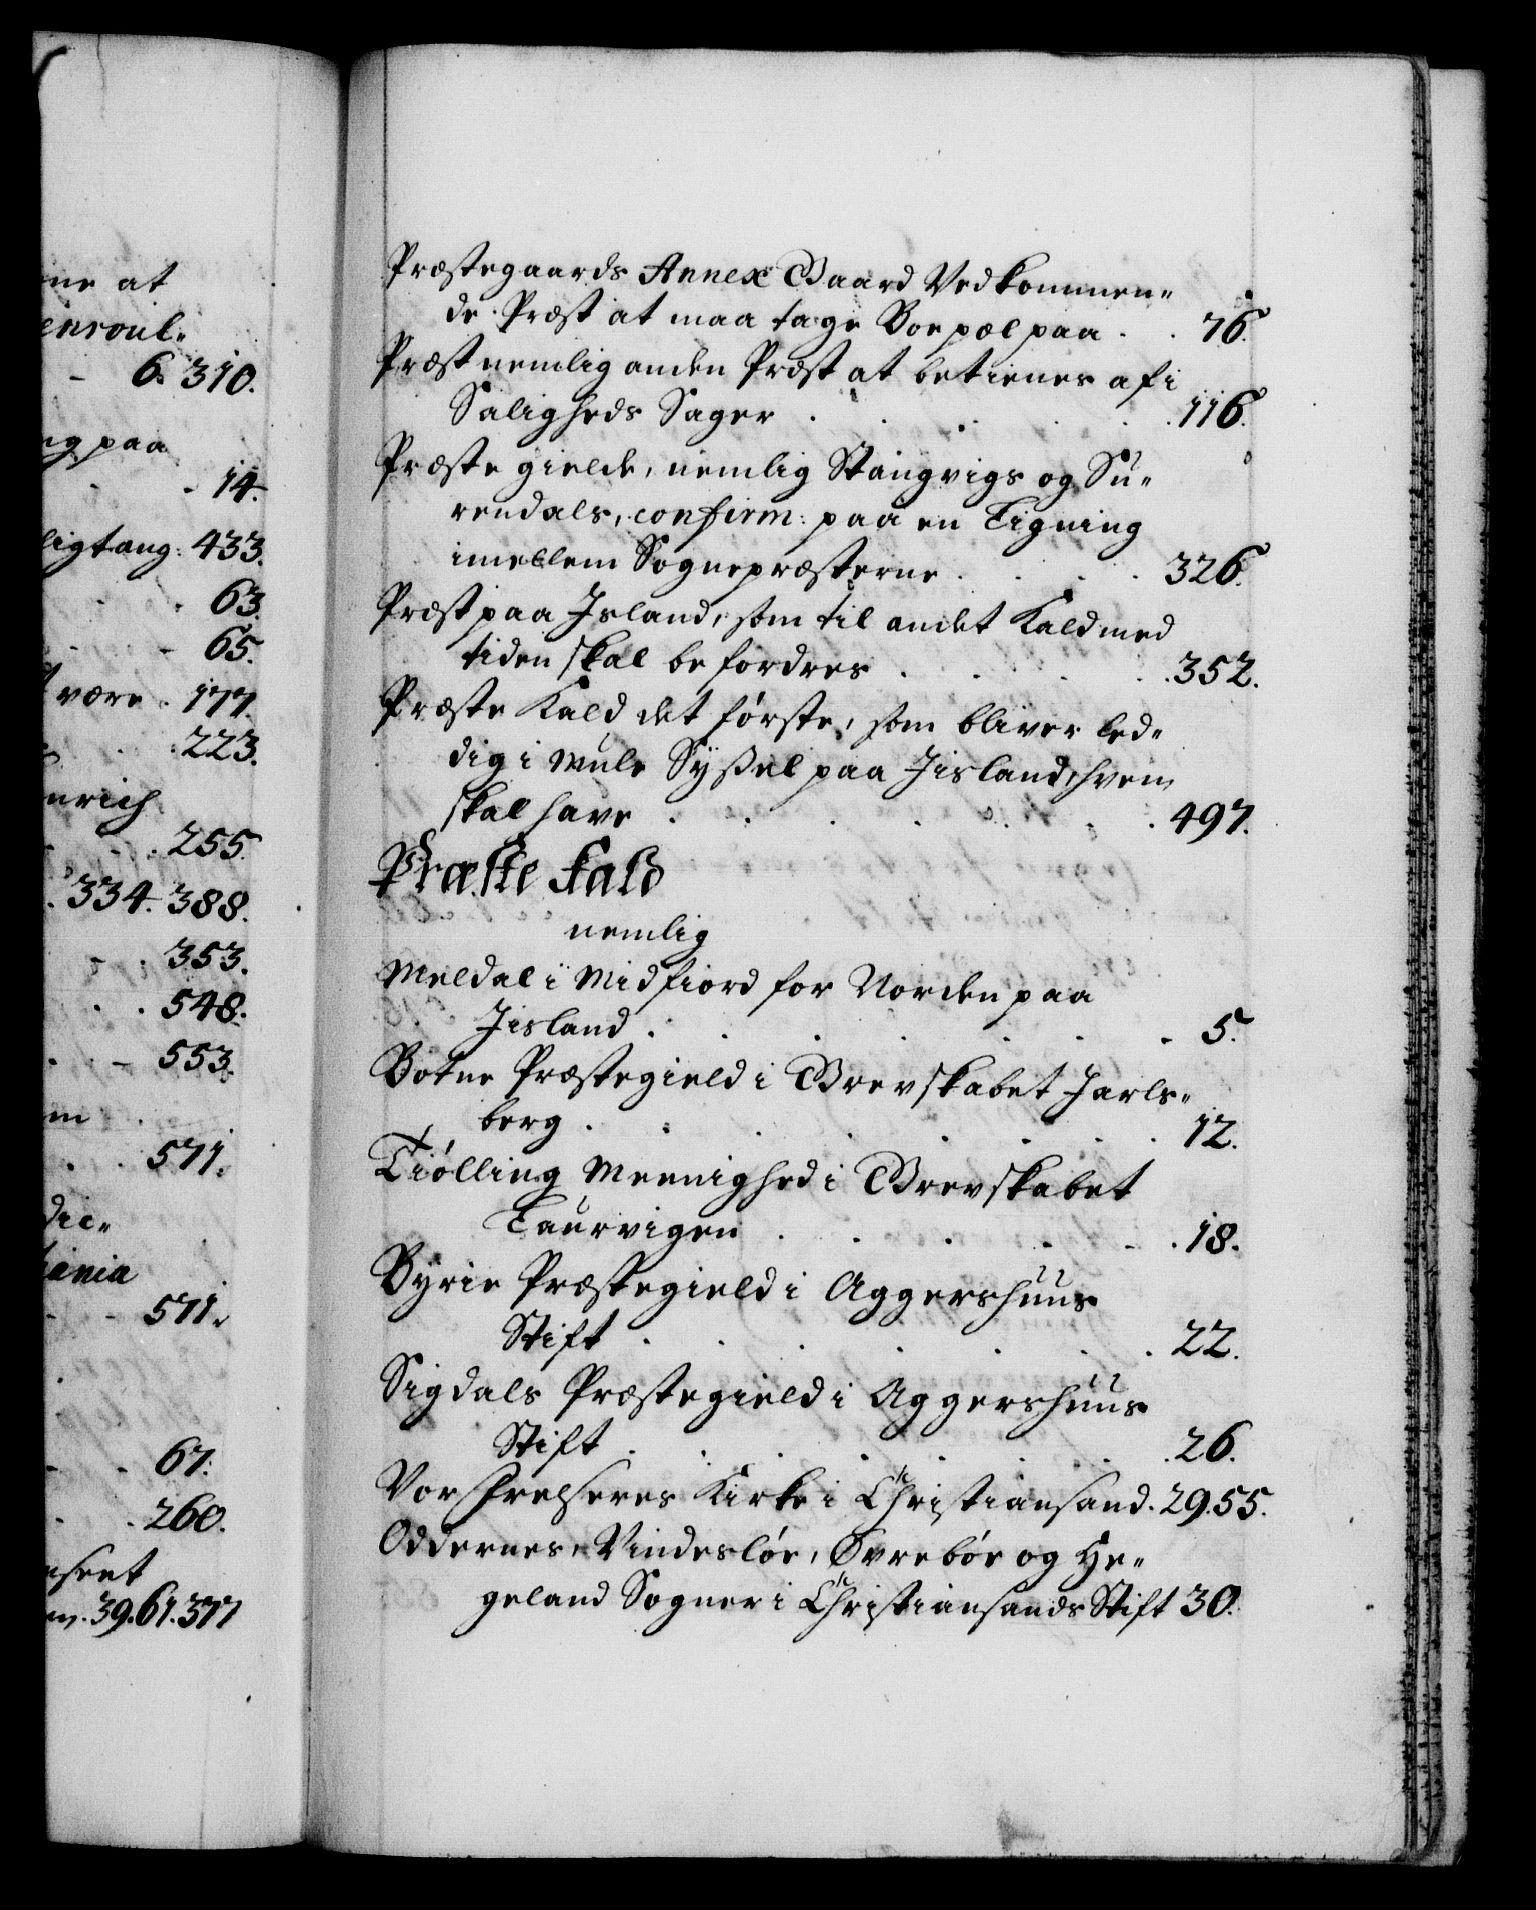 ne at
enroul-
- 6. 310.
ng paa
- 14.
ligtang: 433.
63.
- 65.
være . 177.
223.
nrich
255.
334. 388.
- 353.
548.
- 553.
m
571.
die-
iania
- - 571.
- - 67.
- 260.
nsent
39. 61. 377
Præstegaards Annex Gaard Vedkommen-
de Præst at maa tage Boepæl paa . . 76.
Præst nemlig anden Præst at betienes af i
Saligheds Sager . . . . . 116.
Præste gielde, nemlig Stangvigs og Su-
rendals, confirm: paa en Ligning
imellem Sognepræsterne . . . 326.
Præst paa Island, som til andet Kald med
tiden skal befordres . . . . 352.
Præste Kald det første, som bliver led-
dig i Mule Syssel paa Jisland, hvem
skal have . . . . . . 497.
Præste Kald
nemlig
Meldal i Midfiord for Norden paa
Jisland . . . . . . 5.
Botne Præstegield i Grevskabet Jarls-
berg . . . . . . . 12.
Tiølling Meenighed i Grevskabet
Laurvigen . . . . . 18.
Byrie Præstegield i Aggershuus
Stift . . . . . . . 22.
Sigdals Præstegield i Aggershuus
Stift . . . . . . . 26.
Vor Frelseres Kirke i Christiansand. 29. 55.
Oddernes, Vindesløe, Øvrebøe og He-
geland Sogner i Christiansands Stift 30.